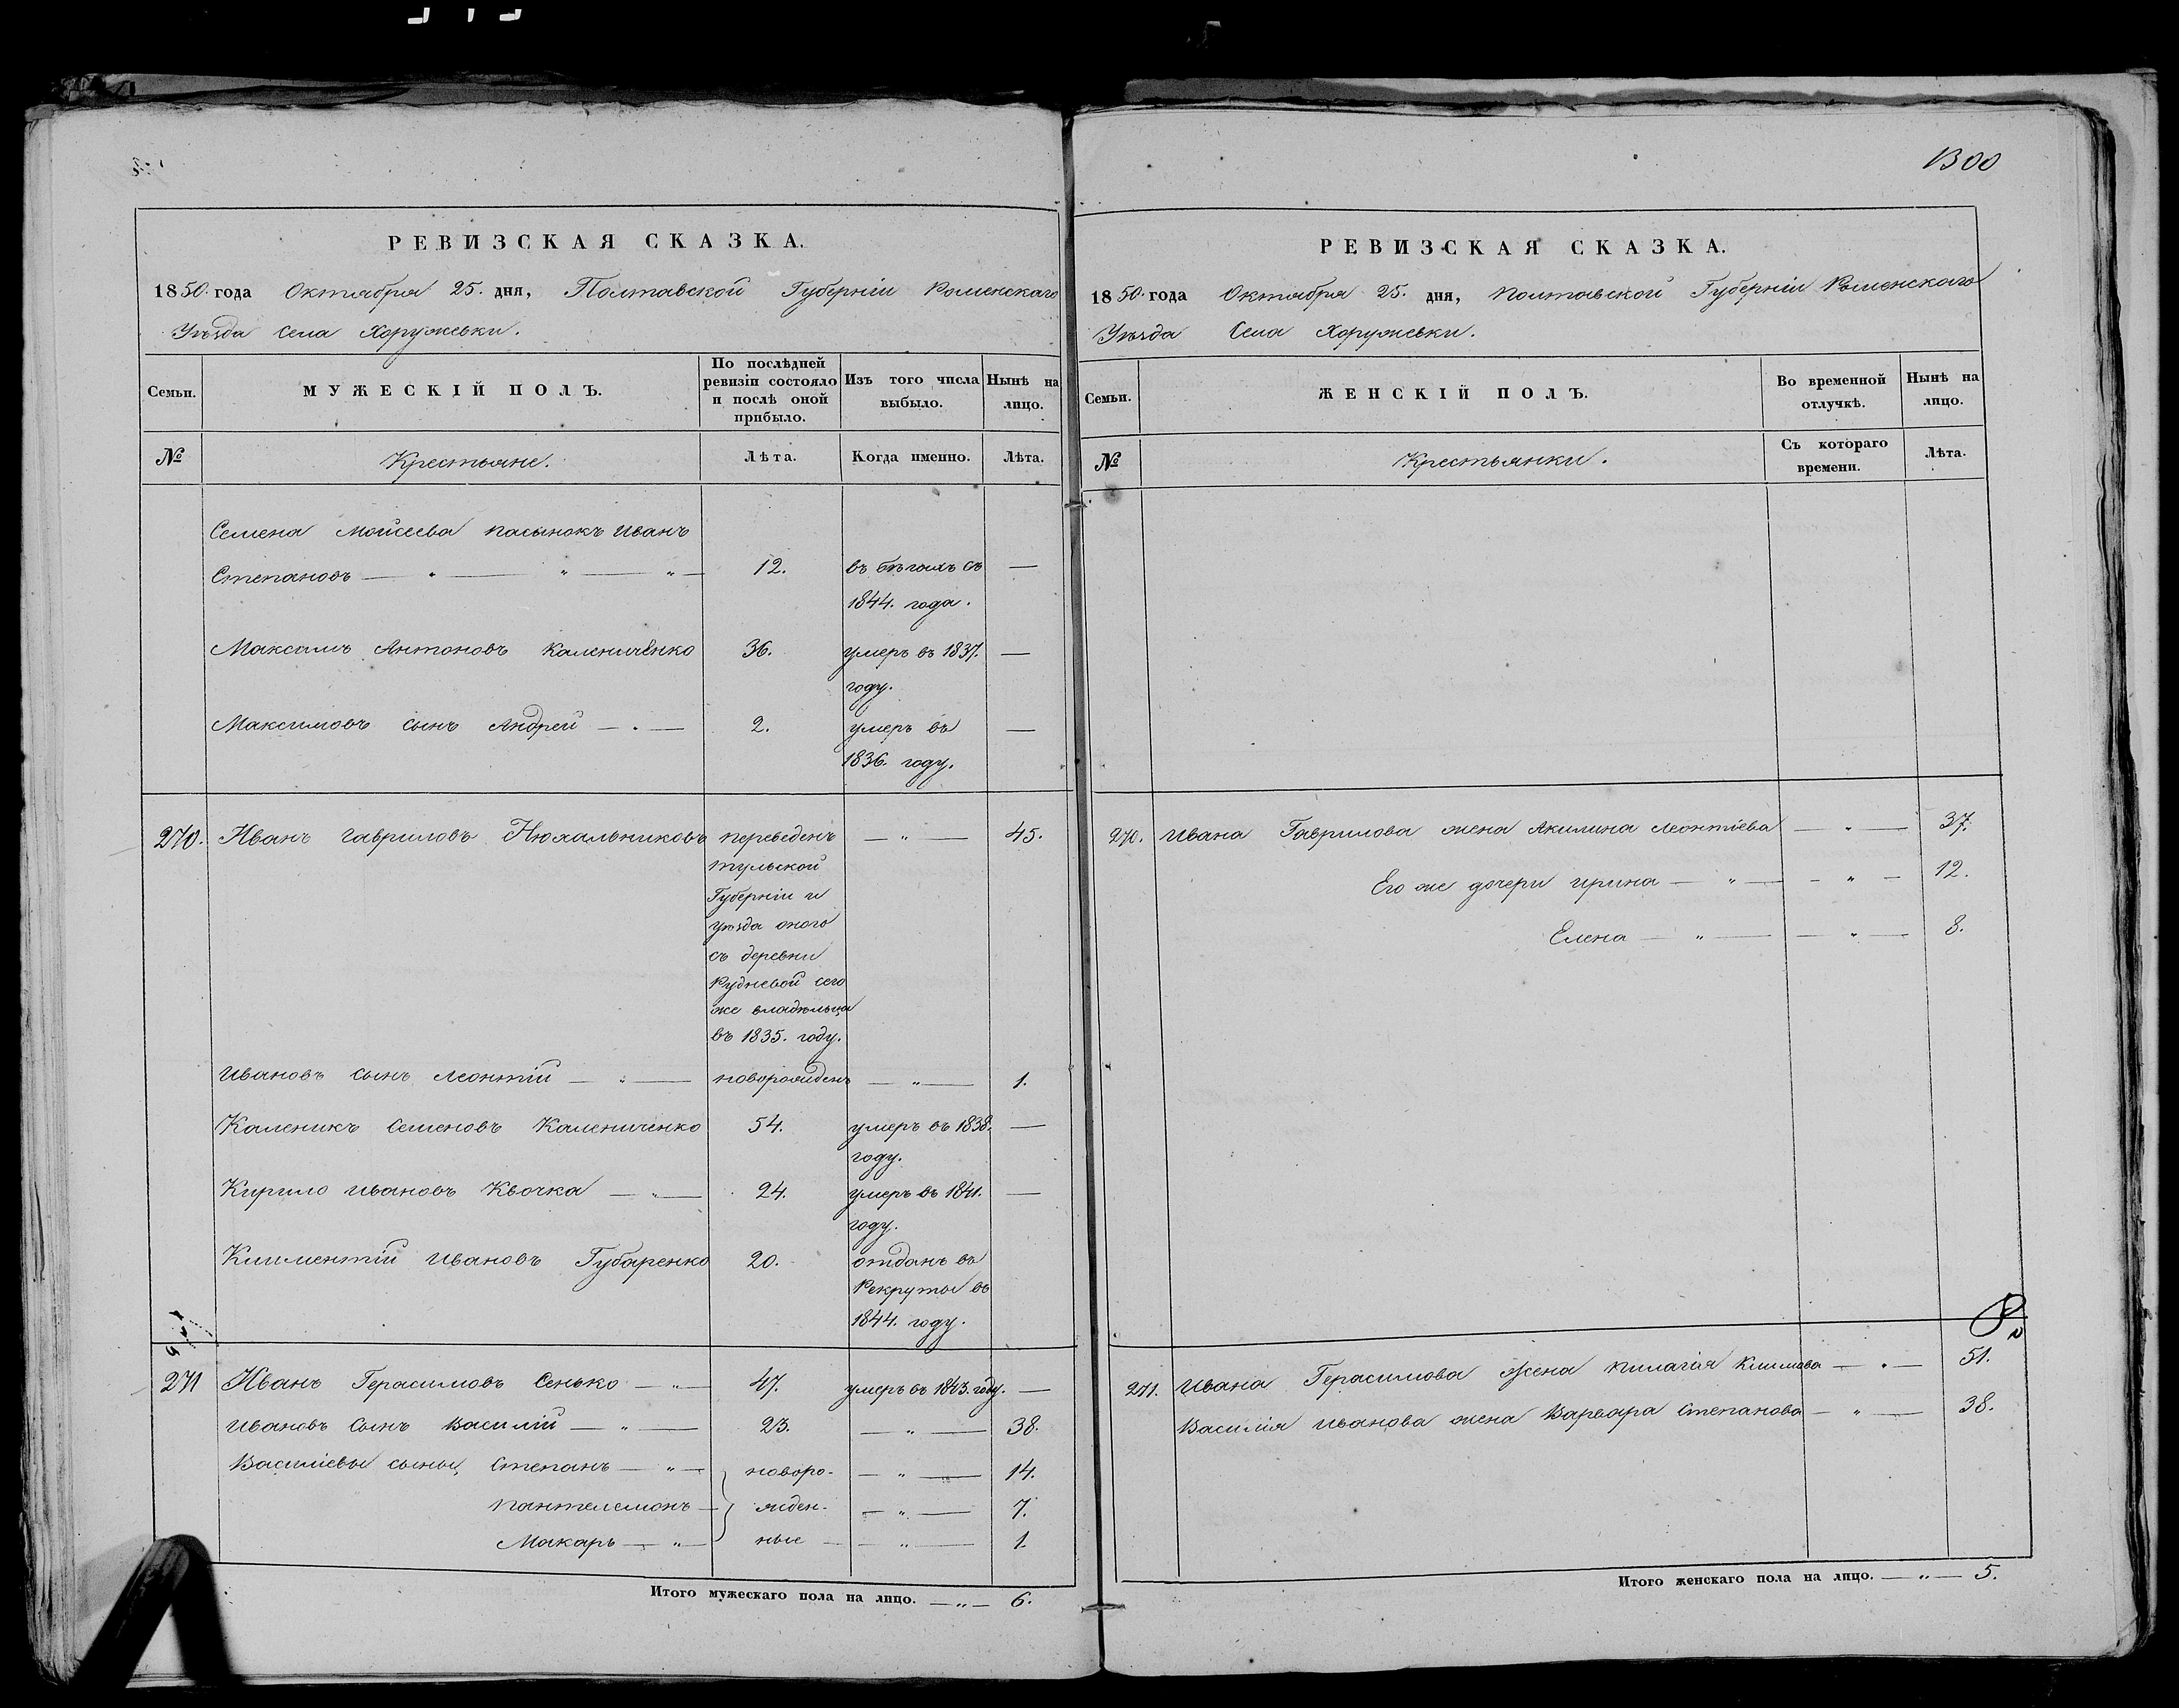 РЕВИЗСКАЯ СКАЗКА.
1850. года Октября 25. дня, Полтавской Губерніи Роменскаго
Уѣзда Села Хоружевки.
Семьи.
МУЖЕСКІЙ ПОЛЪ.
По послѣдней
ревизіи состояло
и послѣ оной
прибыло.
Изъ того числа
выбыло.
Нынѣ на
лицо.
№
Крестьяне.
Лѣта.
Когда именно.
Лѣта.
Семена Мойсеева пасынокъ Иванъ
Степановъ — " — " — " — 12. въ бѣгахъ съ —
1844. года.
Максимъ Антоновъ Калениченко 36. умеръ въ 1837. —
году.
Максимовъ сынъ Андрей — " — 2. умеръ въ —
1836. году.
270. Иванъ Гавриловъ Нюхальниковъ переведенъ — " — 45.
тульской
Губерніи и
уѣзда оного
съ деревни
Рудневой сего
же владѣльца
въ 1835. году.
Ивановъ сынъ Леонтій — " — новорожденъ — " — 1.
Каленикъ Семеновъ Калениченко 54. умеръ въ 1838. —
году.
Кирило Ивановъ Квочка — " — 24. умеръ въ 1841. —
году.
Климентій Ивановъ Губаренко 20. отданъ въ
Рекруты въ
1844. году.
271 Иванъ Герасимовъ Сенько — " — 47. умеръ въ 1843. году. —
Ивановъ Сынъ Василій — " — 23. — " — 38.
Василіевы сыны, Степанъ — " — новоро- — " — 14.
Пантелемонъ — жден- — " — 7.
Макаръ — " — ные — " — 1.
Итого мужескаго пола на лицо. — " — 6.
1300
РЕВИЗСКАЯ СКАЗКА.
1850. года Октября 25. дня, Полтавской Губерніи Роменскаго
Уѣзда Села Хоружевки.
Семьи.
ЖЕНСКІЙ ПОЛЪ.
Во временной
отлучкѣ.
Нынѣ на
лицо.
№
Крестьянки.
Съ котораго
времени.
Лѣта.
270. Ивана Гаврилова жена Акилина Леонтіева — " — 37.
Его же дочери Ирина — " — — " — 12.
Елена — " — — " — 8.
271. Ивана Герасимова Жена Пилагія Климова — " — 51.
Василія Иванова жена Варвара Степанова — " — 38.
Итого женскаго пола на лицо. — " — 5.